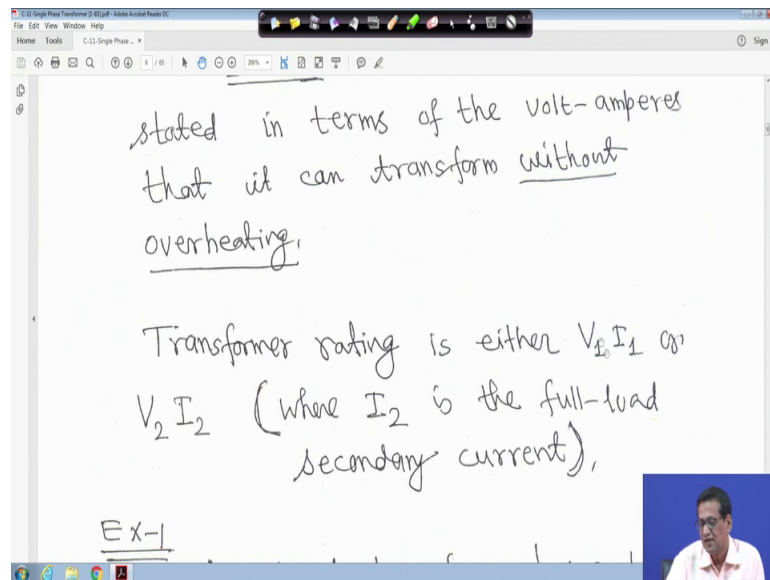 C-11-Single Phase Transformer [1-65].pdf - Adobe Acrobat Reader DC
File Edit View Window Help
Home Tools C-11-Single Phase ... × Sign
6 / 65 200%
stated in terms of the volt-amperes
that it can transform without
overheating.
Transformer rating is either V₁I₁ or
V₂I₂ (where I₂ is the full-load
secondary current).
Ex-1